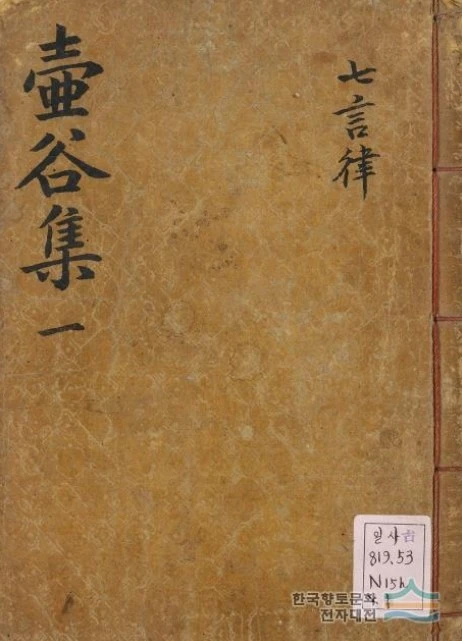 七言律
壺谷集 一
일사古
819.53
N15h
한국향토문화
전자대전